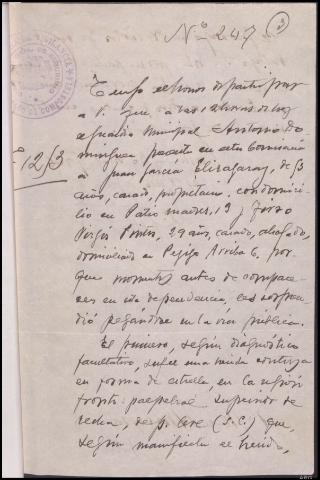 Nº 247
Tengo el honor de participar
a V. que, a las 12 horas de hoy
el guardia municipal Antonio Do-
minguez presentó en esta Comisaría
12/3
a Juan García Elizagaray, de
años, casado, propietario, con domici-
lio en Patio 19 y
29 años, casado, abogado,
domiciliado en Arriba 6, por
que momentos antes de compare-
cer en esta dependencia, les sorpren-
dió pegándose en la vía pública.
El primero, según diagnóstico
facultativo, sufre una herida contusa
en forma de estrella, en la región
fronto palpebral superior de-
recha, de p. leve (S. C.) que,
según manifiesta el herido,